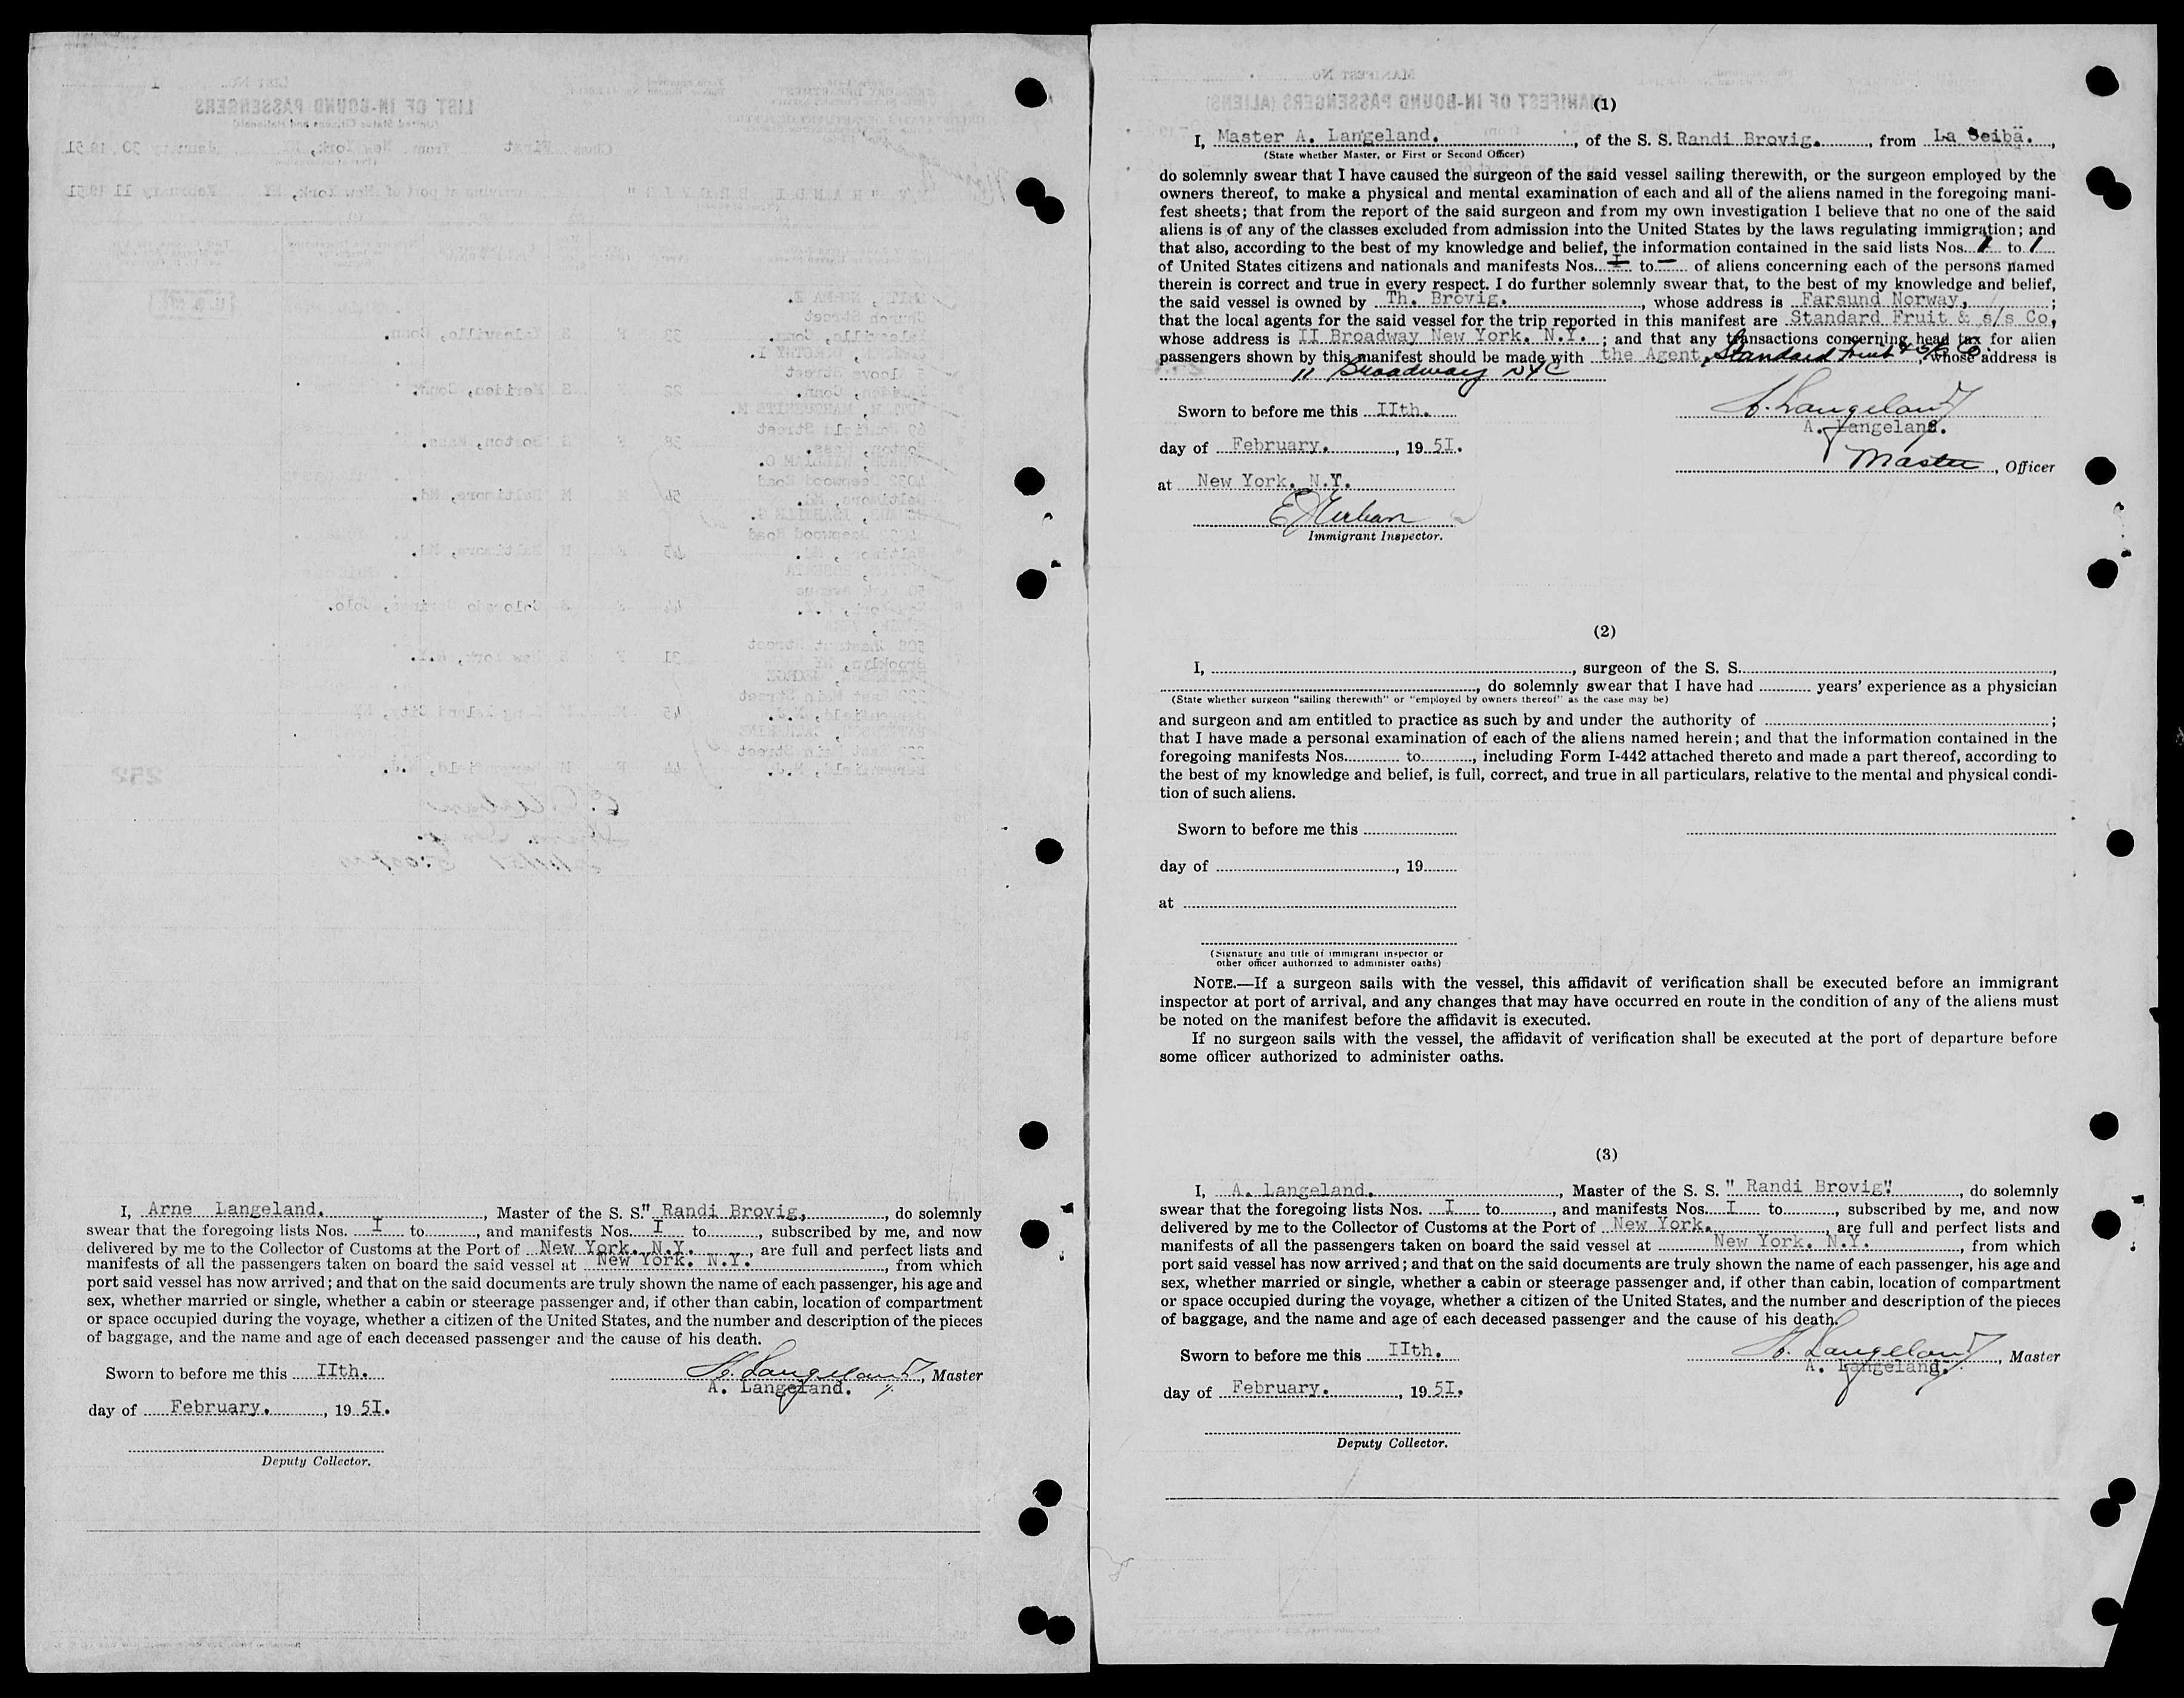 I, Arne Langeland. , Master of the S. S." Randi Brovig, , do solemnly
swear that the foregoing lists Nos. I to , and manifests Nos. I to , subscribed by me, and now
delivered by me to the Collector of Customs at the Port of New York. N.Y. , are full and perfect lists and
manifests of all the passengers taken on board the said vessel at New York. N.Y. , from which
port said vessel has now arrived; and that on the said documents are truly shown the name of each passenger, his age and
sex, whether married or single, whether a cabin or steerage passenger and, if other than cabin, location of compartment
or space occupied during the voyage, whether a citizen of the United States, and the number and description of the pieces
of baggage, and the name and age of each deceased passenger and the cause of his death.
Sworn to before me this IIth.
A. Langeland , Master
A. Langeland.
day of February. , 19 5I.
Deputy Collector.
(1)
I, Master A. Langeland. , of the S. S. Randi Brovig. , from La Ceiba. ,
(State whether Master, or First or Second Officer)
do solemnly swear that I have caused the surgeon of the said vessel sailing therewith, or the surgeon employed by the
owners thereof, to make a physical and mental examination of each and all of the aliens named in the foregoing mani-
fest sheets; that from the report of the said surgeon and from my own investigation I believe that no one of the said
aliens is of any of the classes excluded from admission into the United States by the laws regulating immigration; and
that also, according to the best of my knowledge and belief, the information contained in the said lists Nos. 1 to 1
of United States citizens and nationals and manifests Nos. I to — of aliens concerning each of the persons named
therein is correct and true in every respect. I do further solemnly swear that, to the best of my knowledge and belief,
the said vessel is owned by Th. Brovig. , whose address is Farsund Norway, ;
that the local agents for the said vessel for the trip reported in this manifest are Standard Fruit & s/s Co,
whose address is II Broadway New York. N.Y. ; and that any transactions concerning head tax for alien
passengers shown by this manifest should be made with the Agent, Standard Fruit & S/S Co. , whose address is
11 Broadway NYC
Sworn to before me this IIth.
A. Langeland
A. Langeland.
day of February. , 19 5I.
Master , Officer
at New York. N.Y.
Immigrant Inspector.
(2)
I, , surgeon of the S. S. ,
, do solemnly swear that I have had years' experience as a physician
(State whether surgeon "sailing therewith" or "employed by owners thereof" as the case may be)
and surgeon and am entitled to practice as such by and under the authority of ;
that I have made a personal examination of each of the aliens named herein; and that the information contained in the
foregoing manifests Nos. to , including Form I-442 attached thereto and made a part thereof, according to
the best of my knowledge and belief, is full, correct, and true in all particulars, relative to the mental and physical condi-
tion of such aliens.
Sworn to before me this
day of , 19
at
(Signature and title of immigrant inspector or
other officer authorized to administer oaths)
NOTE.—If a surgeon sails with the vessel, this affidavit of verification shall be executed before an immigrant
inspector at port of arrival, and any changes that may have occurred en route in the condition of any of the aliens must
be noted on the manifest before the affidavit is executed.
If no surgeon sails with the vessel, the affidavit of verification shall be executed at the port of departure before
some officer authorized to administer oaths.
(3)
I, A. Langeland. , Master of the S. S. " Randi Brovig". , do solemnly
swear that the foregoing lists Nos. I to , and manifests Nos. I to , subscribed by me, and now
delivered by me to the Collector of Customs at the Port of New York. , are full and perfect lists and
manifests of all the passengers taken on board the said vessel at New York. N.Y. , from which
port said vessel has now arrived; and that on the said documents are truly shown the name of each passenger, his age and
sex, whether married or single, whether a cabin or steerage passenger and, if other than cabin, location of compartment
or space occupied during the voyage, whether a citizen of the United States, and the number and description of the pieces
of baggage, and the name and age of each deceased passenger and the cause of his death.
Sworn to before me this IIth.
A. Langeland , Master
A. Langeland.
day of February. , 19 5I.
Deputy Collector.